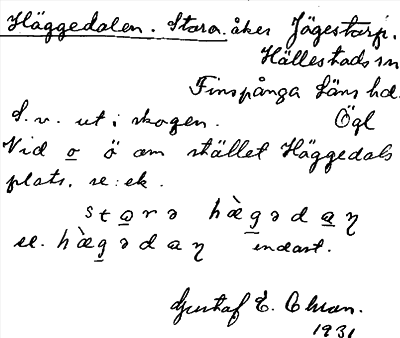 Häggedalen. Stora. åker Jägestorp.
Hällestads sn
Finspånga läns hd.
S.v. ut i skogen. Ögl
Vid o ö om stället Häggedals
plats. se: ek.
stọrə hæ̀gədaη
se. hæ̀gədaη endast.
Gustaf E. Ohman.
1931